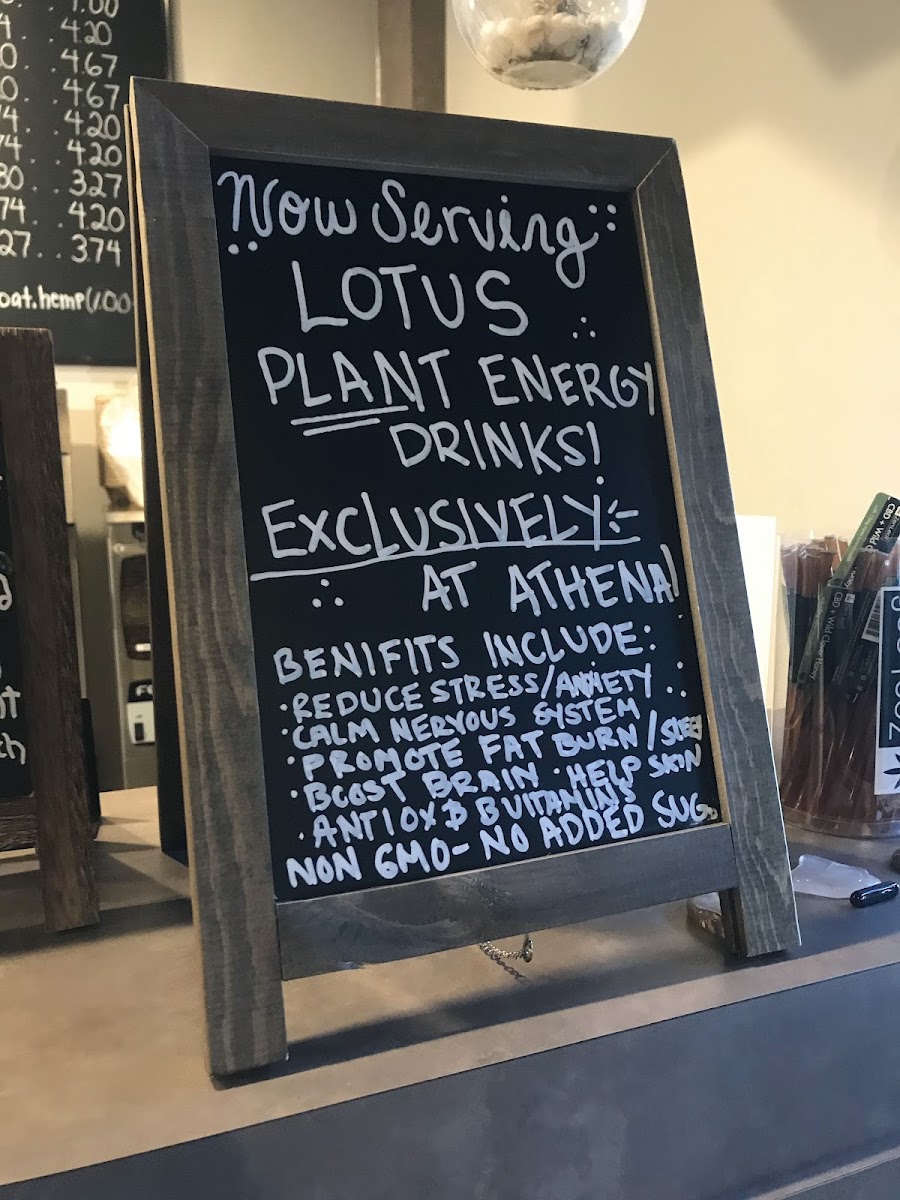 1.00
4. . 4.20
0. . . 4.67
0. . . 4.67
4. . 4.20
74. . 4.20
80. . . 3.27
74. . . 4.20
27. . 3.74
oat.hemp(1.00
Now Serving
LOTUS
PLANT ENERGY
DRINKS!
EXCLUSIVELY
AT ATHENA!
BENIFITS INCLUDE:
·REDUCE STRESS/ANXIETY
·CALM NERVOUS SYSTEM
·PROMOTE FAT BURN/
·BOOST BRAIN ·HELP SKIN
·ANTIOX & B VITAMINS
NON GMO-NO ADDED SUG
CBD + Wild